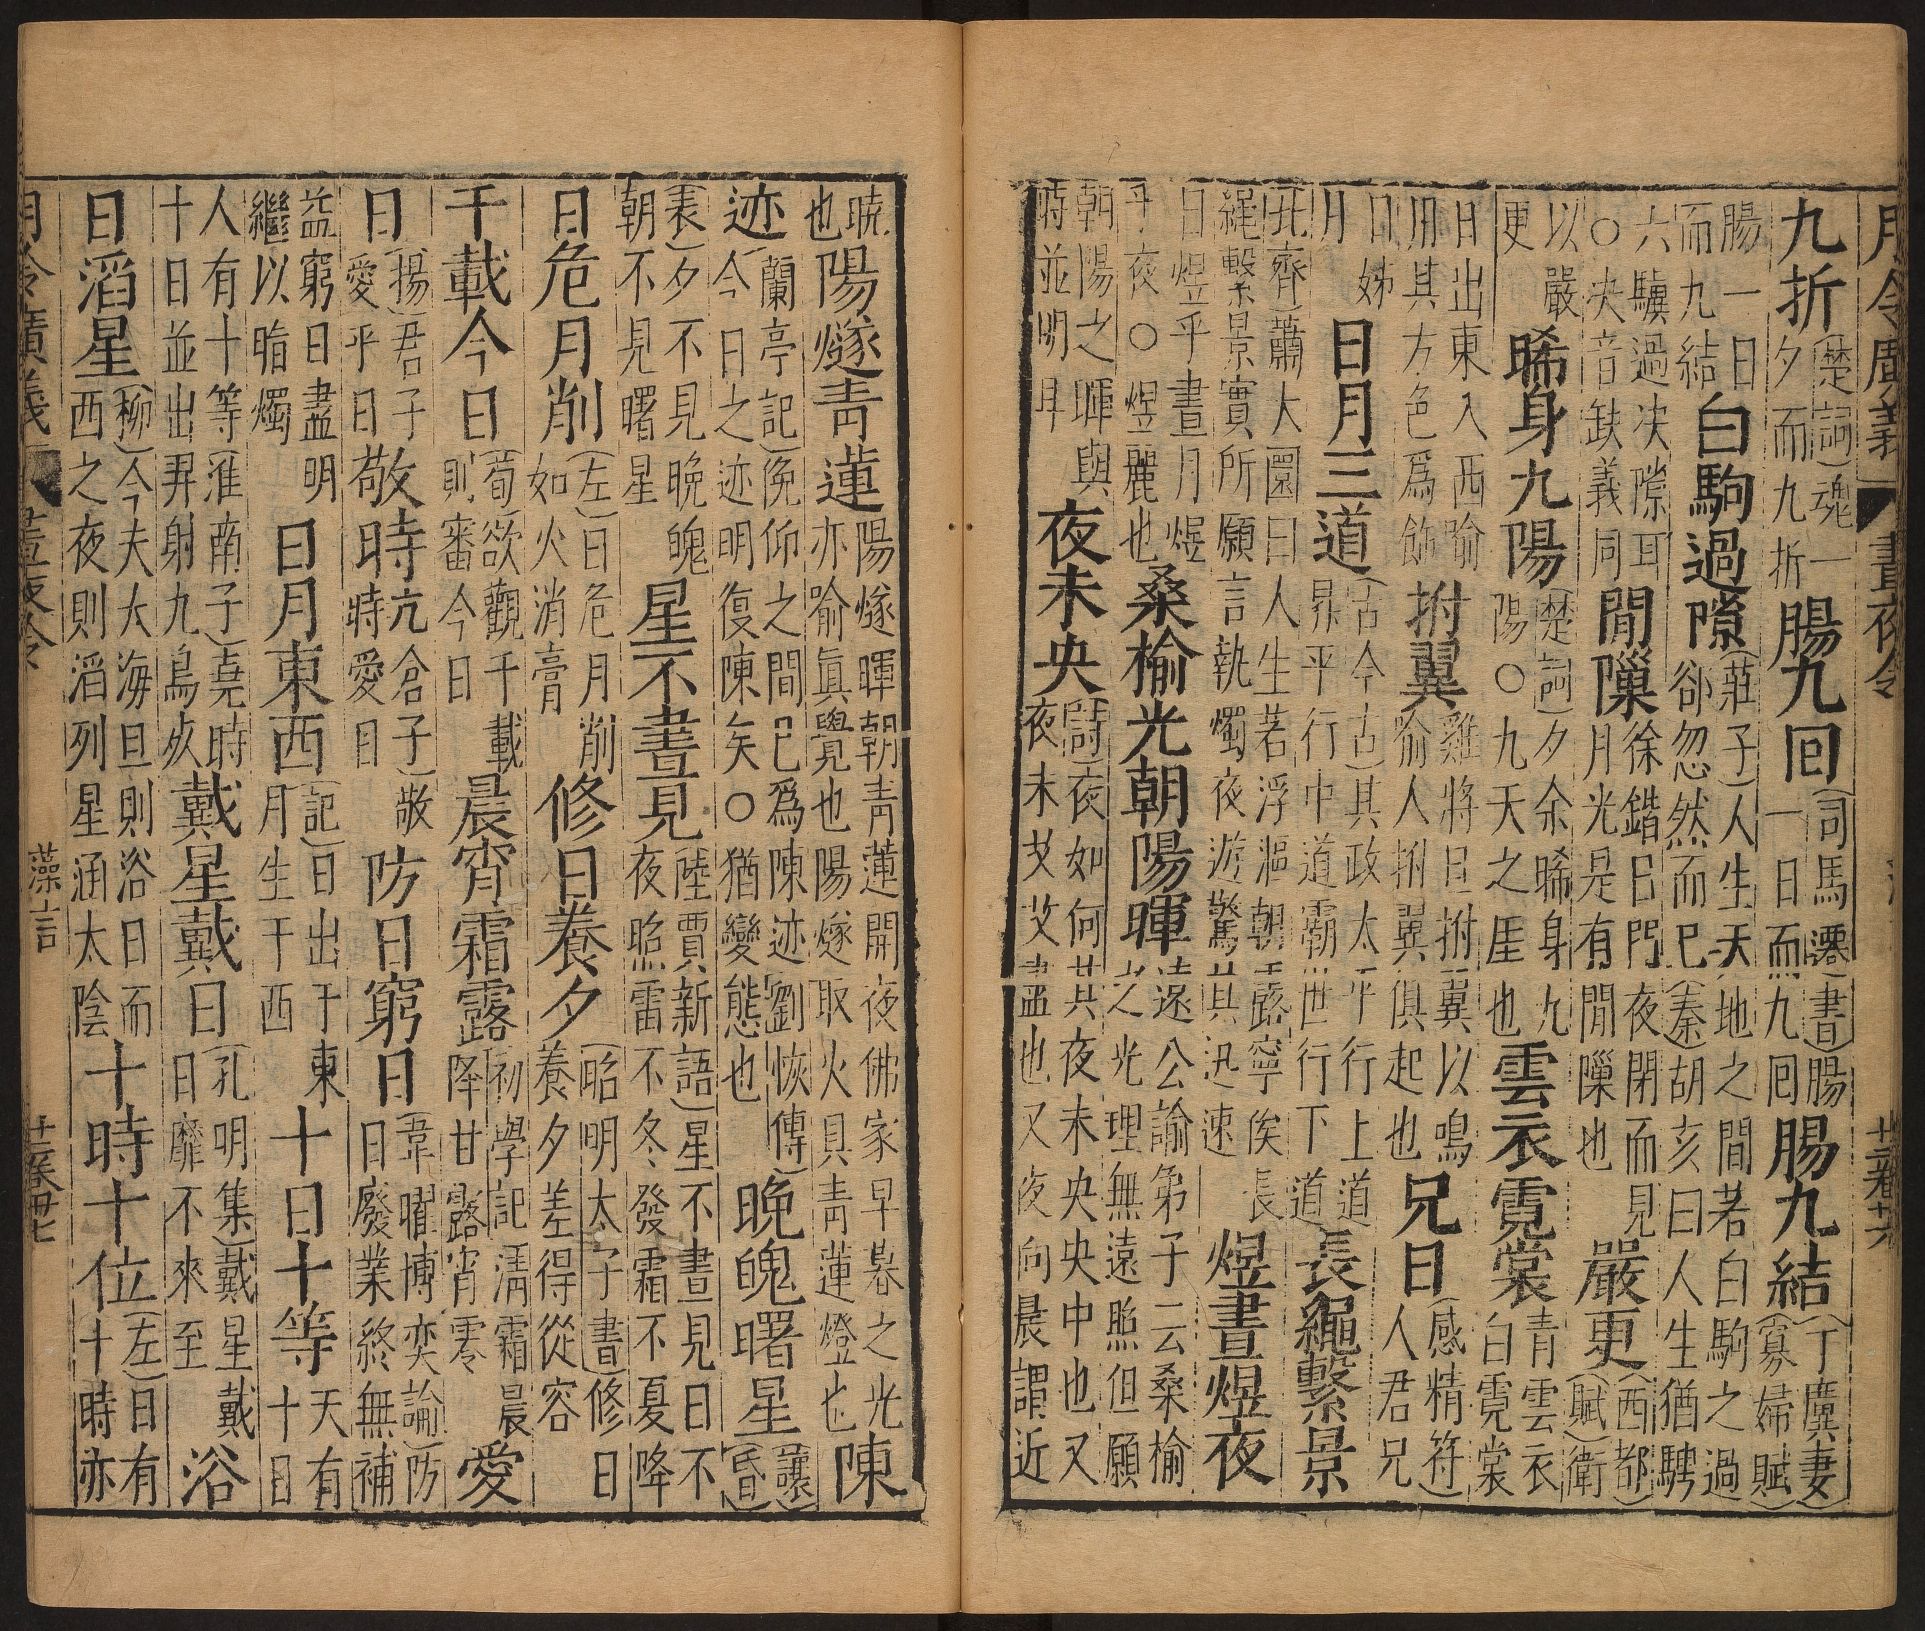 月令廣義 晝夜令
九折(楚詞)魂一夕而九折腸九回(司馬遷)(書)腸一日而九回腸九結(丁廙妻)(寡婦賦)
腸一日而九結白駒過隙(莊子)人生天地之間若白駒之過郤忽然而已(秦)胡亥曰人生猶騁
六驥過決隙耳○央音缺義同閒隟徐鍇曰門夜閉而見月光是有閒隟也嚴更(西都)(賦)衛
以嚴更晞身九陽(楚詞)夕余晞身九陽○九天之厓也雲衣霓裳青雲衣白霓裳
日出東入西喻用其方色爲飾拊翼雞將旦拊翼以鳴喻人拊翼俱起也兄日(感精符)人君兄
日姊月日月三道(古今占)其政太平行上道昇平行中道霸世行下道長繩繫景
(北齊)蕭大圜曰人生若浮漚朝露寧俟長繩繫景實所願言執燭夜遊驚其迅速煜晝煜夜
日煜乎晝月煜乎夜○煜麗也桑榆光朝陽暉遠公諭弟子云桑榆之光理無遠照但願
朝陽之暉與時並明耳夜未央(詩)夜如何其夜未央央中也又夜未艾艾盡也又夜向晨謂近
曉也陽燧青蓮陽燧暉朝青蓮開夜佛家早暮之光亦喻眞覺也陽燧取火具青蓮燈也陳
迹(蘭亭記)俛仰之間已爲陳迹(劉恢傳)今日之迹明復陳矣○猶變態也晚魄曙星(讓)(昏)
(表)夕不見晚魄朝不見曙星星不晝見(陸賈新語)星不晝見日不夜照雷不冬發霜不夏降
日危月削(左)日危月削如火消膏修日養夕(昭明太子書)修日養夕差得從容
千載今日(荀)欲觀千載則審今日晨宵霜露初學記清霜晨降甘露宵零愛
日(揚)君子愛乎日敬時亢倉子)敬時時愛日防日窮日(韋曜博奕論)防日廢業終無補
益窮日盡明繼以晦燭日月東西(記)日出于東月生于西十日十等天有十日
人有十等(淮南子)堯時十日並出羿射九烏戴星戴日(孔明集)戴星戴日靡不來至浴
日滔星(柳)今夫大海旦則浴日而西之夜則滔列星涵太陰十時十位(左)日有十時亦
月令廣義 晝夜令 藻言